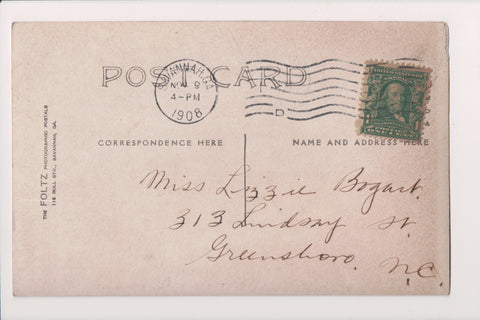 POST CARD
SAVANNAH, GA.
NOV 9
4-PM
1908
D
CORRESPONDENCE HERE
NAME AND ADDRESS HERE
THE FOLTZ PHOTOGRAPHIC POSTALS
SAVANNAH, GA.
Miss Lizzie Bogart.
313 Lindsay St
Greensboro.
N.C.